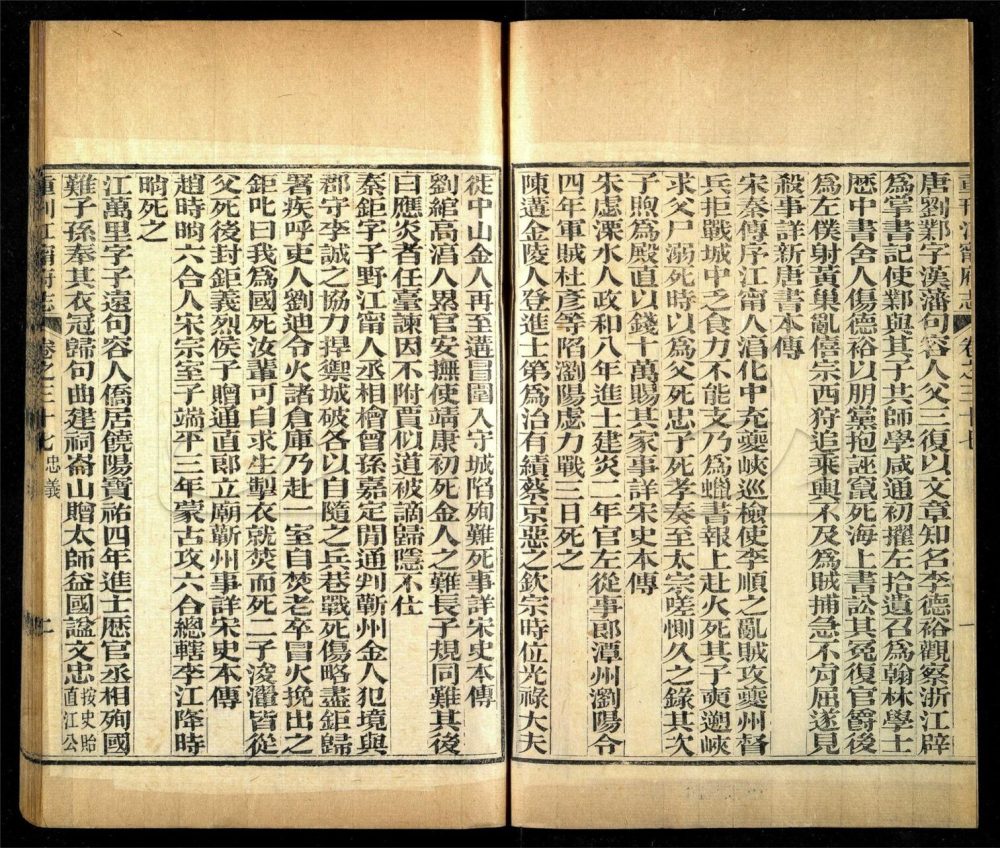 重刊江甯府志 卷之三十七 一
唐劉鄴字漢藩句容人父三復以文章知名李德裕觀察浙江辟
爲掌書記使鄴與其子共師學咸通初擢左拾遺召爲翰林學士
歷中書舍人傷德裕以朋黨抱誣竄死海上書訟其冤復官爵後
爲左僕射黃巢亂僖宗西狩追乘輿不及爲賊捕急不肎屈遂見
殺事詳新唐書本傳
宋秦傳序江甯人淯化中充夔峽巡檢使李順之亂賊攻夔州督
兵拒戰城中之食力不能支乃爲蠟書報上赴火死其子奭遡峽
求父尸溺死時以爲父死忠子死孝奏至太宗嗟惻久之錄其次
子煦爲殿直以錢十萬賜其家事詳宋史本傳
朱虙溧水人政和八年進士建炎二年官左從事郎潭州瀏陽令
四年軍賊杜彥等陷瀏陽虙力戰三日死之
陳遘金陵人登進士第爲治有績蔡京惡之欽宗時位光祿大夫
徙中山金人再至遘冒圍入守城陷殉難死事詳宋史本傳
劉綰高淯人累官安撫使靖康初死金人之難長子規同難其後
曰應炎者任臺諫因不附賈似道被謫歸隱不仕
秦鉅字子野江甯人丞相檜曾孫嘉定閒通判蘄州金人犯境與
郡守李誠之協力捍禦城破各以自隨之兵巷戰死傷略盡鉅歸
署疾呼吏人劉迪令火諸倉庫乃赴一室自焚老卒冒火挽出之
鉅叱曰我爲國死汝輩可自求生掣衣就焚而死二子浚瀈皆從
父死後封鉅義烈侯子贈通直郎立廟蘄州事詳宋史本傳
趙時賞六合人宋宗室子端平三年蒙古攻六合總轄李江降時
賞死之
江萬里字子遠句容人僑居饒陽寶祐四年進士歷官丞相殉國
難子孫奉其衣冠歸句曲建祠崙山贈太師益國謚文忠按史貽直江公
重刊江甯府志 卷之三十七 忠義 二